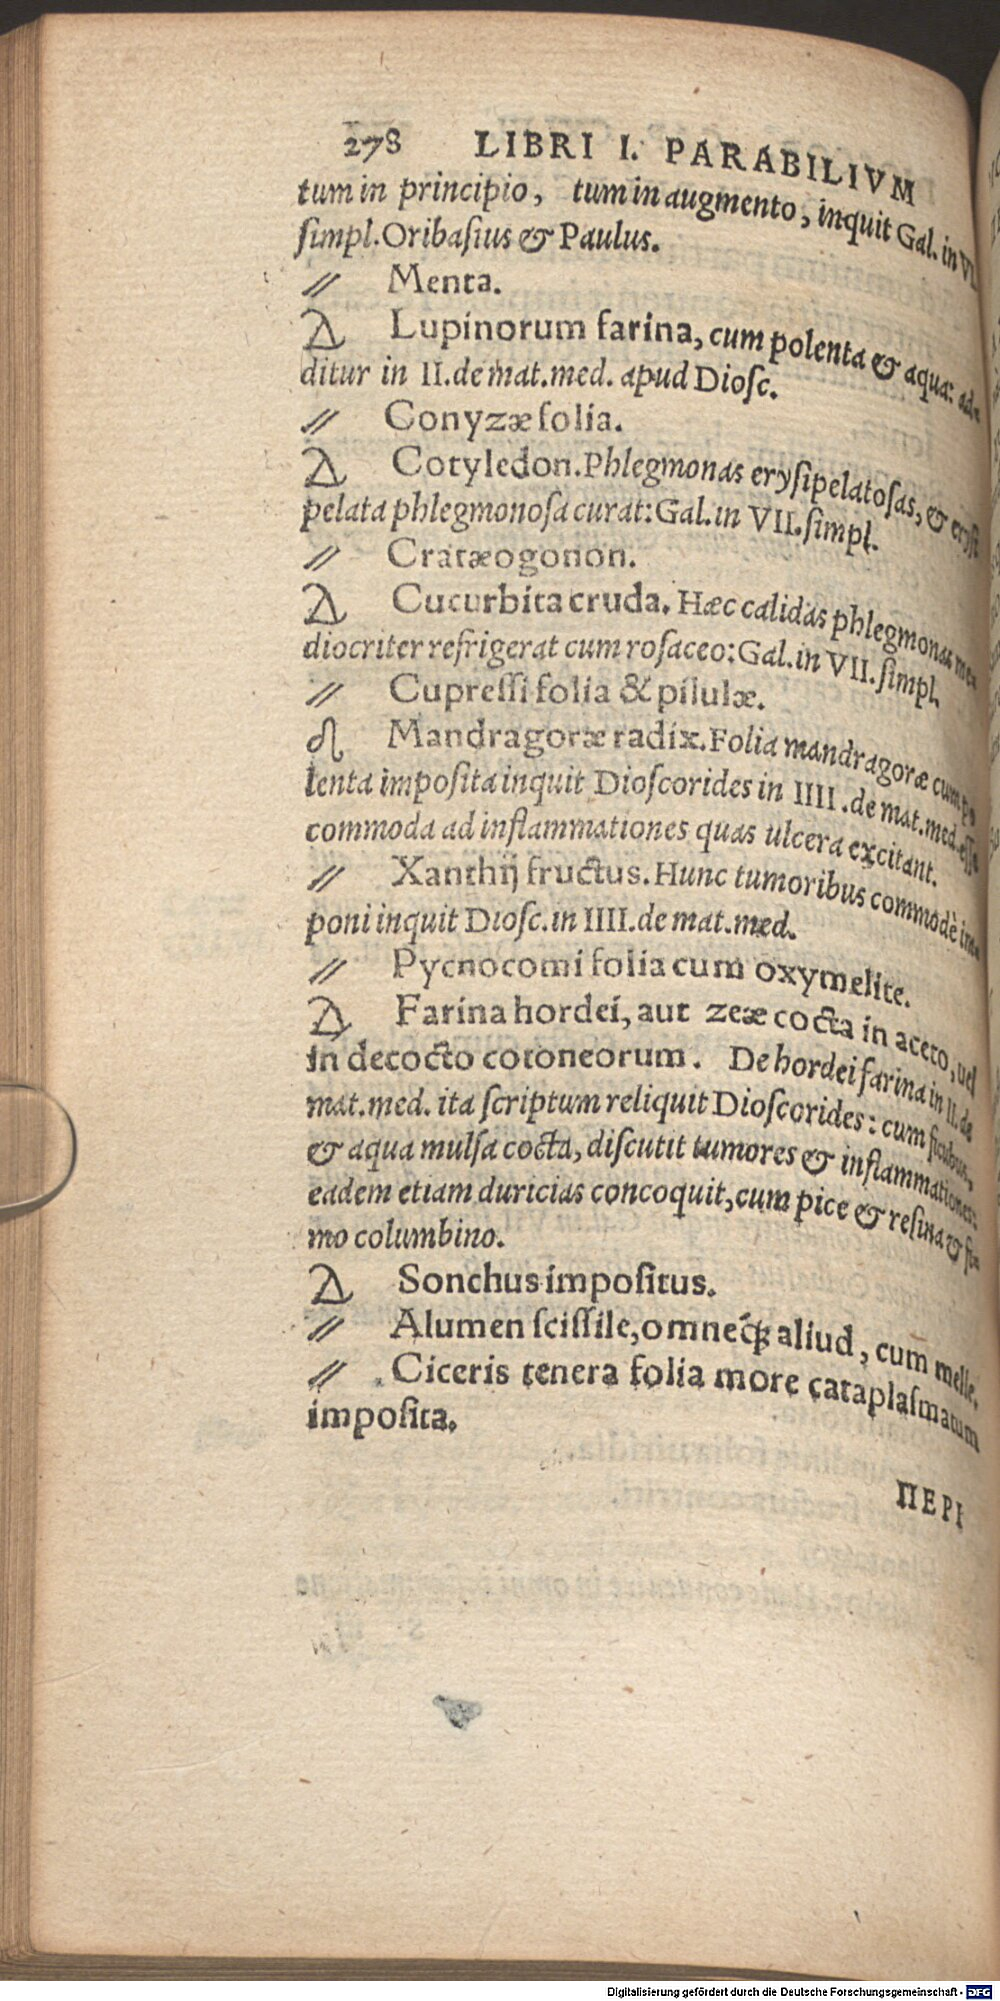 278 LIBRI I. PARABILIVM
tum in principio, tum in augmento, inquit Gal. in VI.
ſimpl. Oribaſius & Paulus.
⫽ Menta.
Δ Lupinorum farina, cum polenta & aqua: ad-
ditur in II. de mat. med. apud Dioſc.
⫽ Conyzæ folia.
Δ Cotyledon. Phlegmonas eryſipelatoſas, & eryſi
pelata phlegmonoſa curat: Gal. in VII. ſimpl.
⫽ Cratæogonon.
Δ Cucurbita cruda. Hæc calidas phlegmonas me-
diocriter refrigerat cum roſaceo: Gal. in VII. ſimpl.
⫽ Cupreſſi folia & pilulæ.
♌ Mandragoræ radix. Folia mandragoræ cum po
lenta impoſita inquit Dioſcorides in IIII. de mat. med. eſſe
commoda ad inflammationes quas ulcera excitant.
⫽ Xanthij fructus. Hunc tumoribus commodè im-
poni inquit Dioſc. in IIII. de mat. med.
⫽ Pycnocomi folia cum oxymelite.
Δ Farina hordei, aut zeæ cocta in aceto, uel
in decocto cotoneorum. De hordei farina in II. de
mat. med. ita ſcriptum reliquit Dioſcorides: cum ficubus,
& aqua mulſa cocta, diſcutit tumores & inflammationes:
eadem etiam duricias concoquit, cum pice & reſina & fi-
mo columbino.
Δ Sonchus impoſitus.
⫽ Alumen ſciſſile, omneq́ꝫ aliud, cum melle.
⫽ Ciceris tenera folia more cataplaſmatum
impoſita.
ΠΕΡΙ
Digitalisierung gefördert durch die Deutsche Forschungsgemeinschaft - DFG